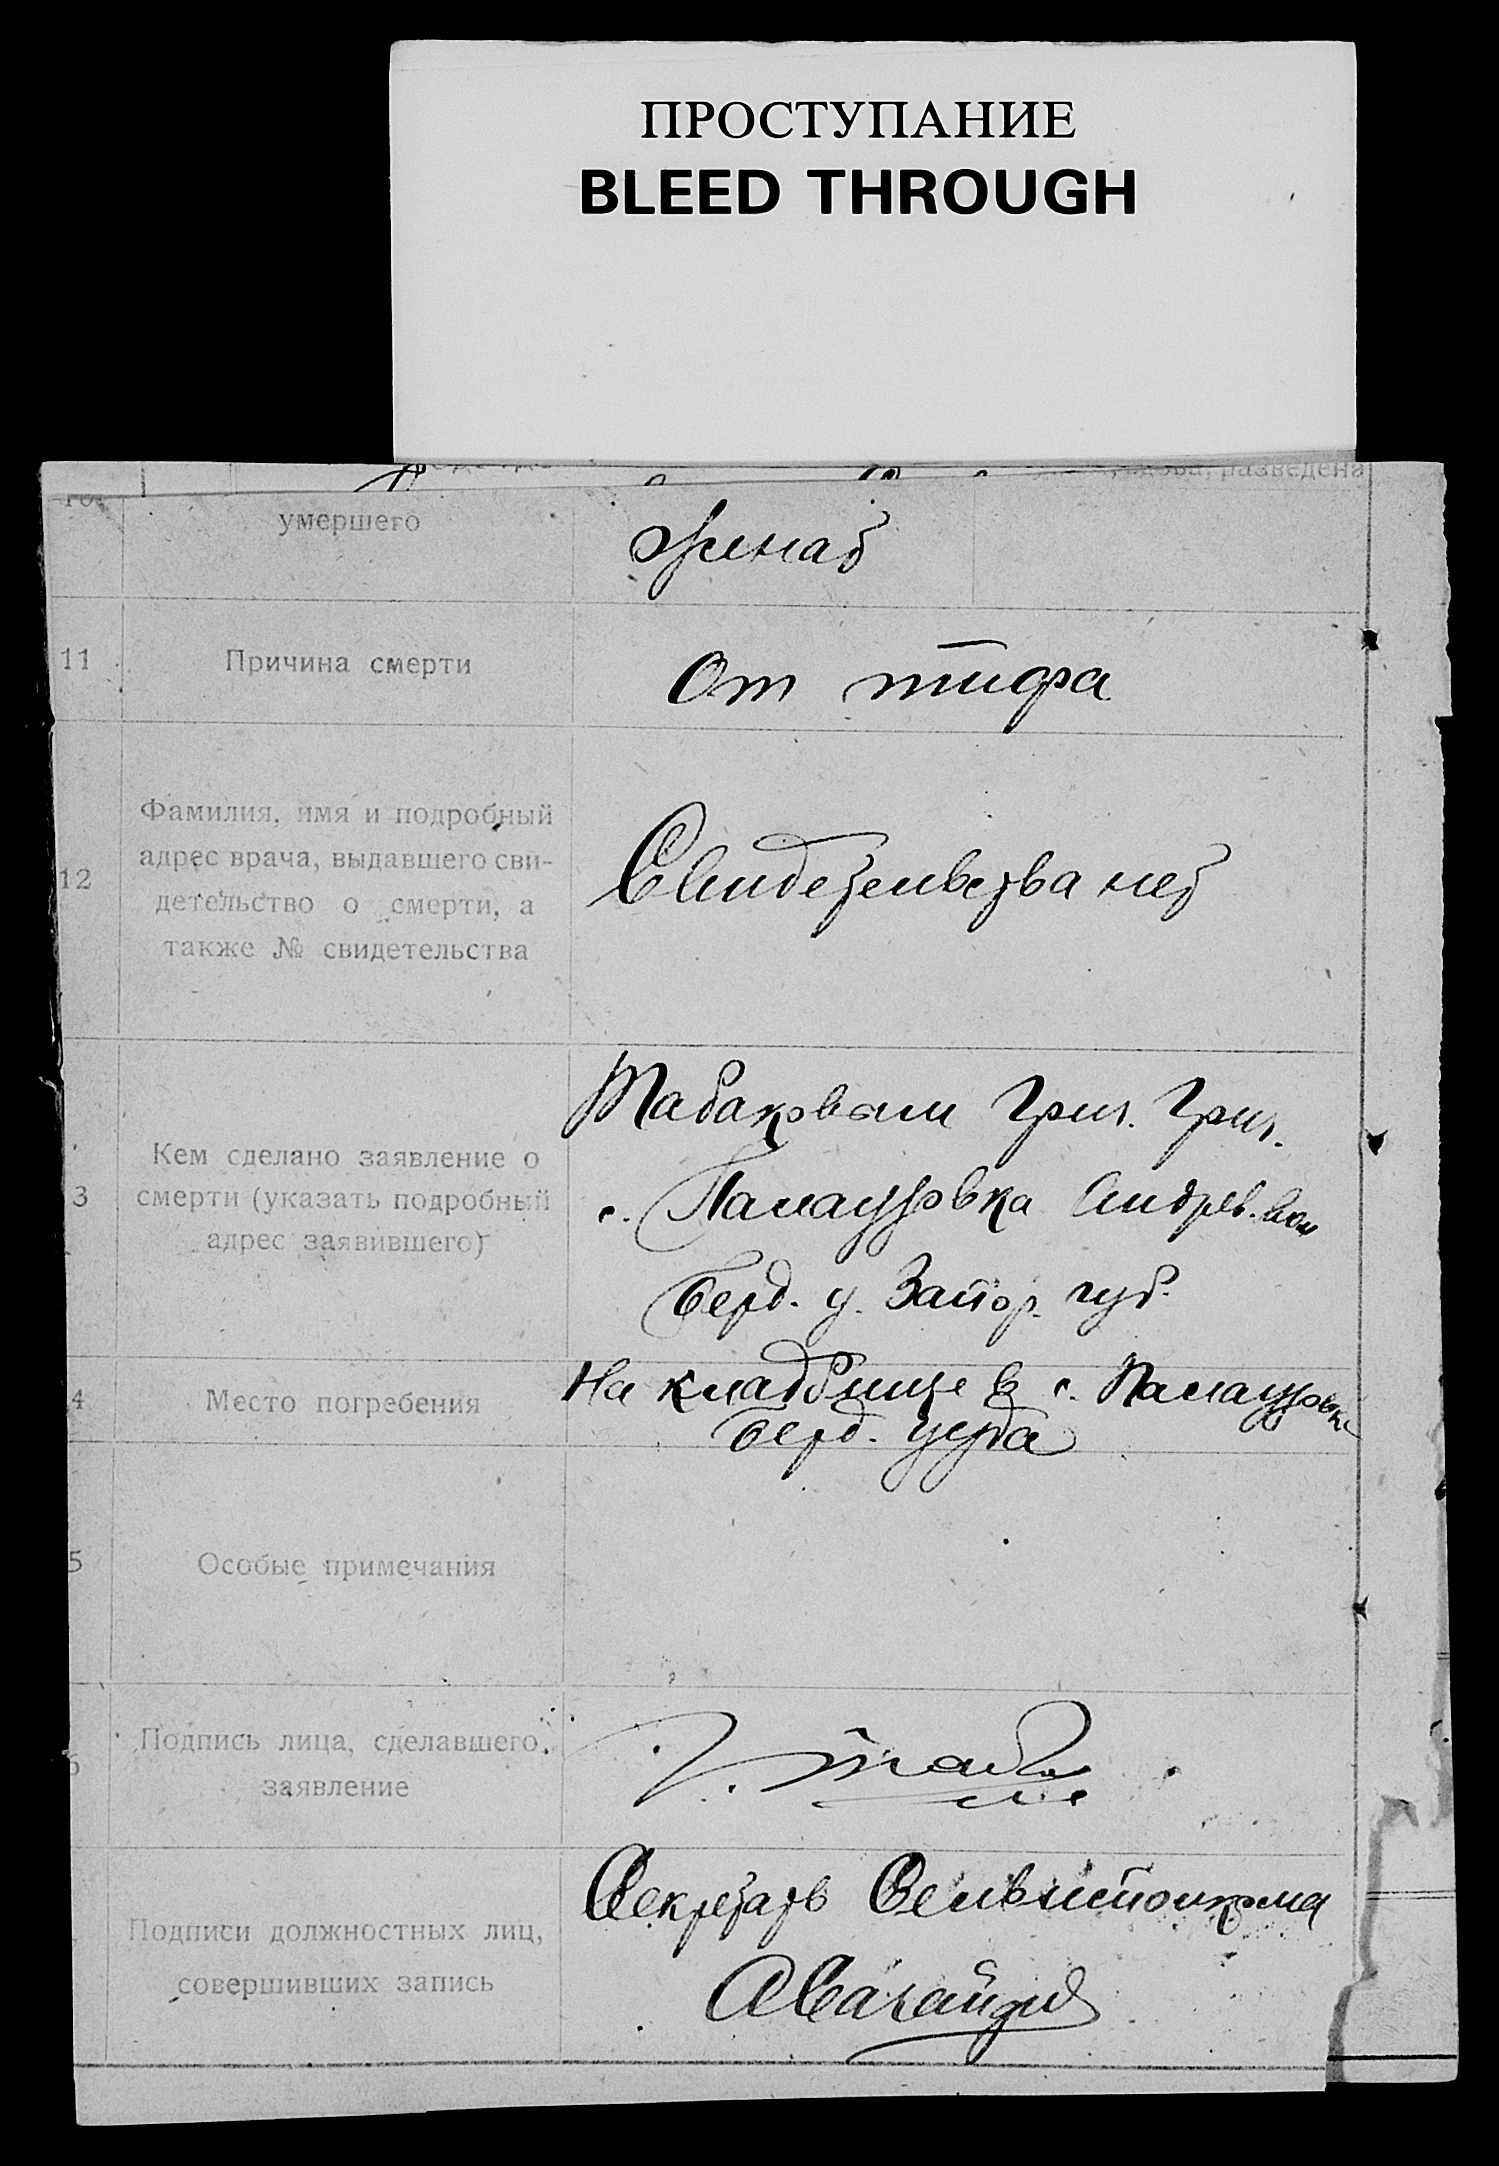 ПРОСТУПАНИЕ
BLEED THROUGH
вдова, разведена
умершего
женат
11 Причина смерти
От тифа
12
Фамилия, имя и подробный
адрес врача, выдавшего сви-
детельство о смерти, а
также № свидетельства
Свидетельства нет
3
Кем сделано заявление о
смерти (указать подробный
адрес заявившего)
Табаковым Григ. Григ.
с. Палаузовка Андрев. вол
Берд. у. Запор. губ.
4 Место погребения
На кладбище в с. Палаузовке
Берд. уезда
5 Особые примечания
Подпись лица, сделавшего
заявление
Г. Таб
Подписи должностных лиц,
совершивших запись
Секретарь Сельисполкома